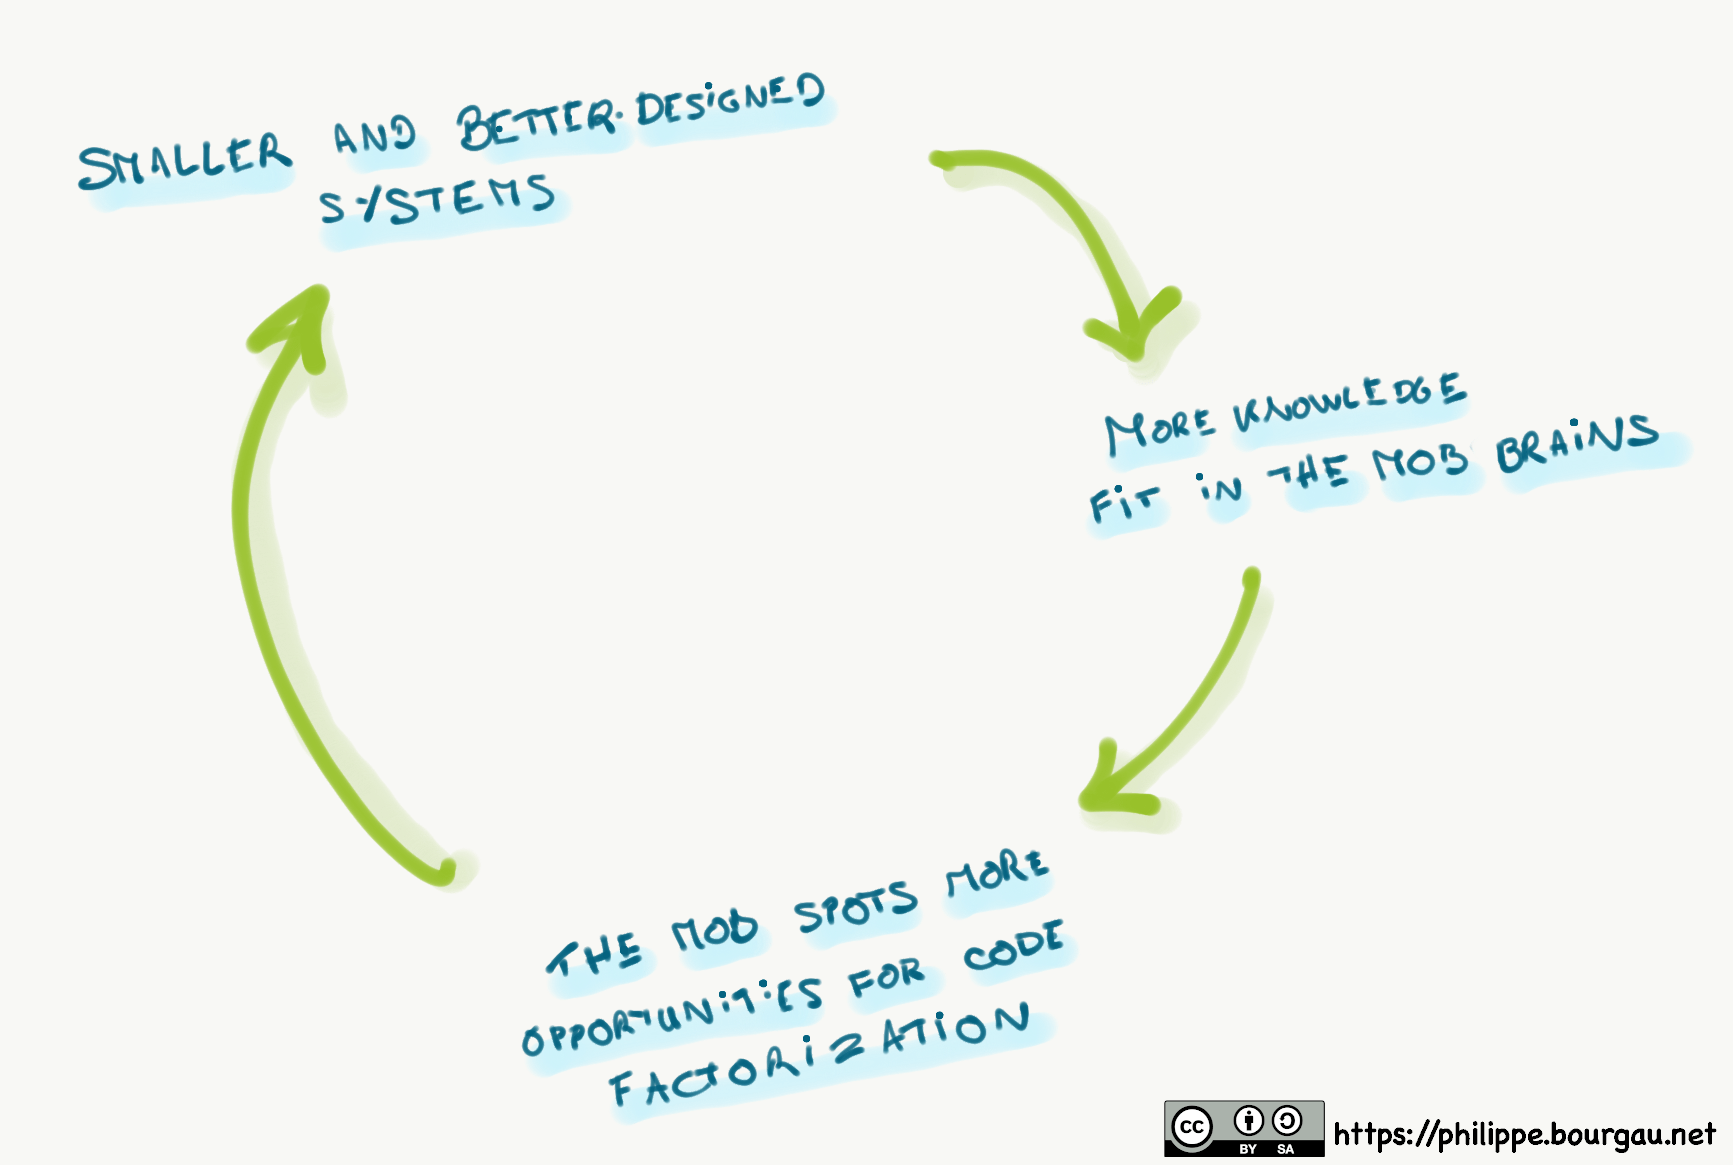 SMALLER AND BETTER-DESIGNED
SYSTEMS
MORE KNOWLEDGE
FIT IN THE MOB BRAINS
THE MOB SPOTS MORE
OPPORTUNITIES FOR CODE
FACTORIZATION
CC BY SA https://philippe.bourgau.net